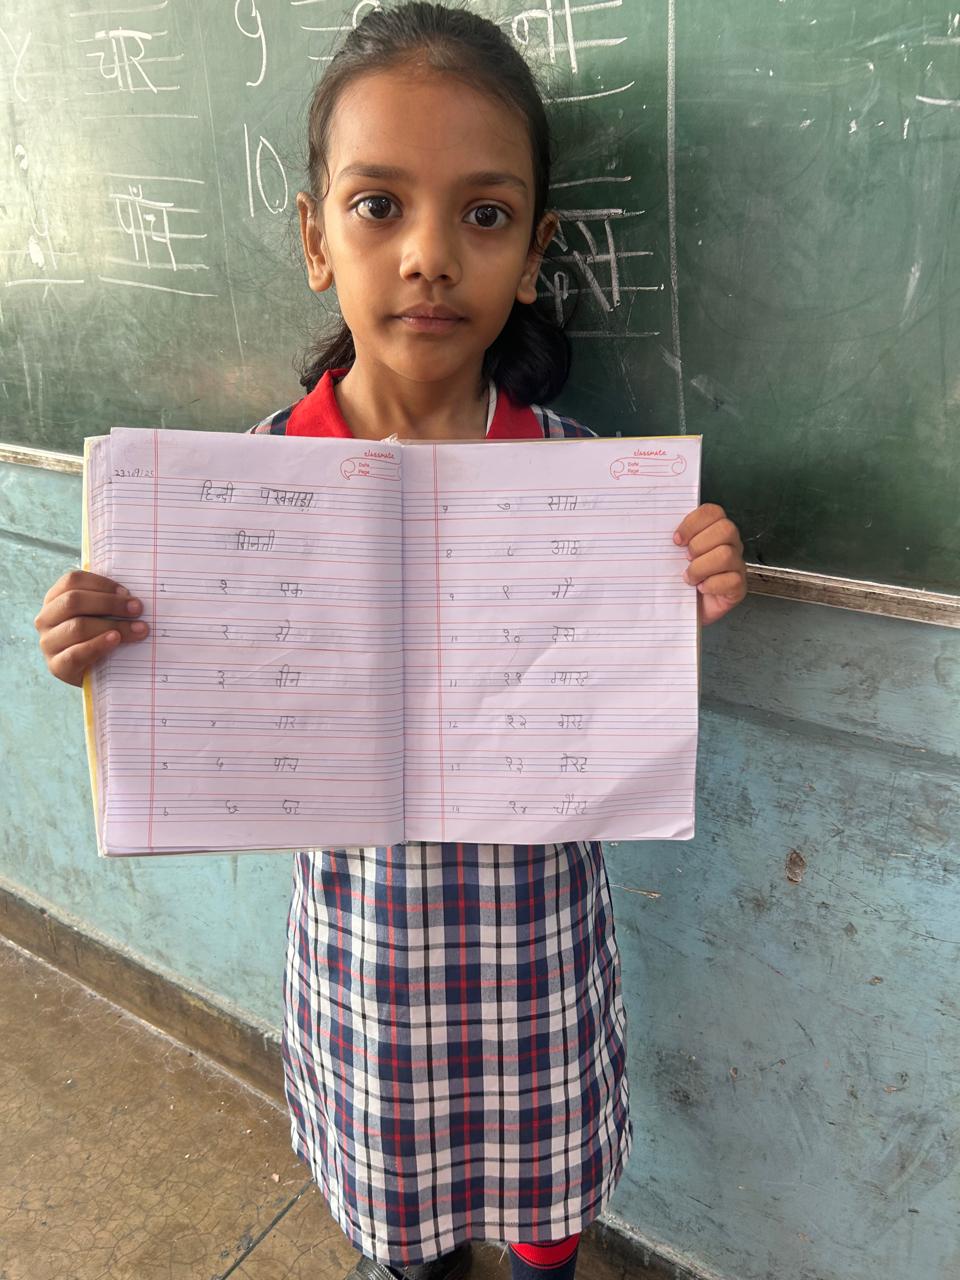 ४ चार 9
५ पाँच 10 दस
classmate
Date
Page
23/09/25
हिन्दी पखवाड़ा
गिनती
1 १ एक
2 २ दो
3 ३ तीन
4 ४ चार
5 ५ पाँच
6 ६ छह
classmate
Date
Page
७ सात
8 ८ आठ
9 ९ नौ
10 १० दस
11 ११ ग्यारह
12 १२ बारह
13 १३ तेरह
14 १४ चौरह